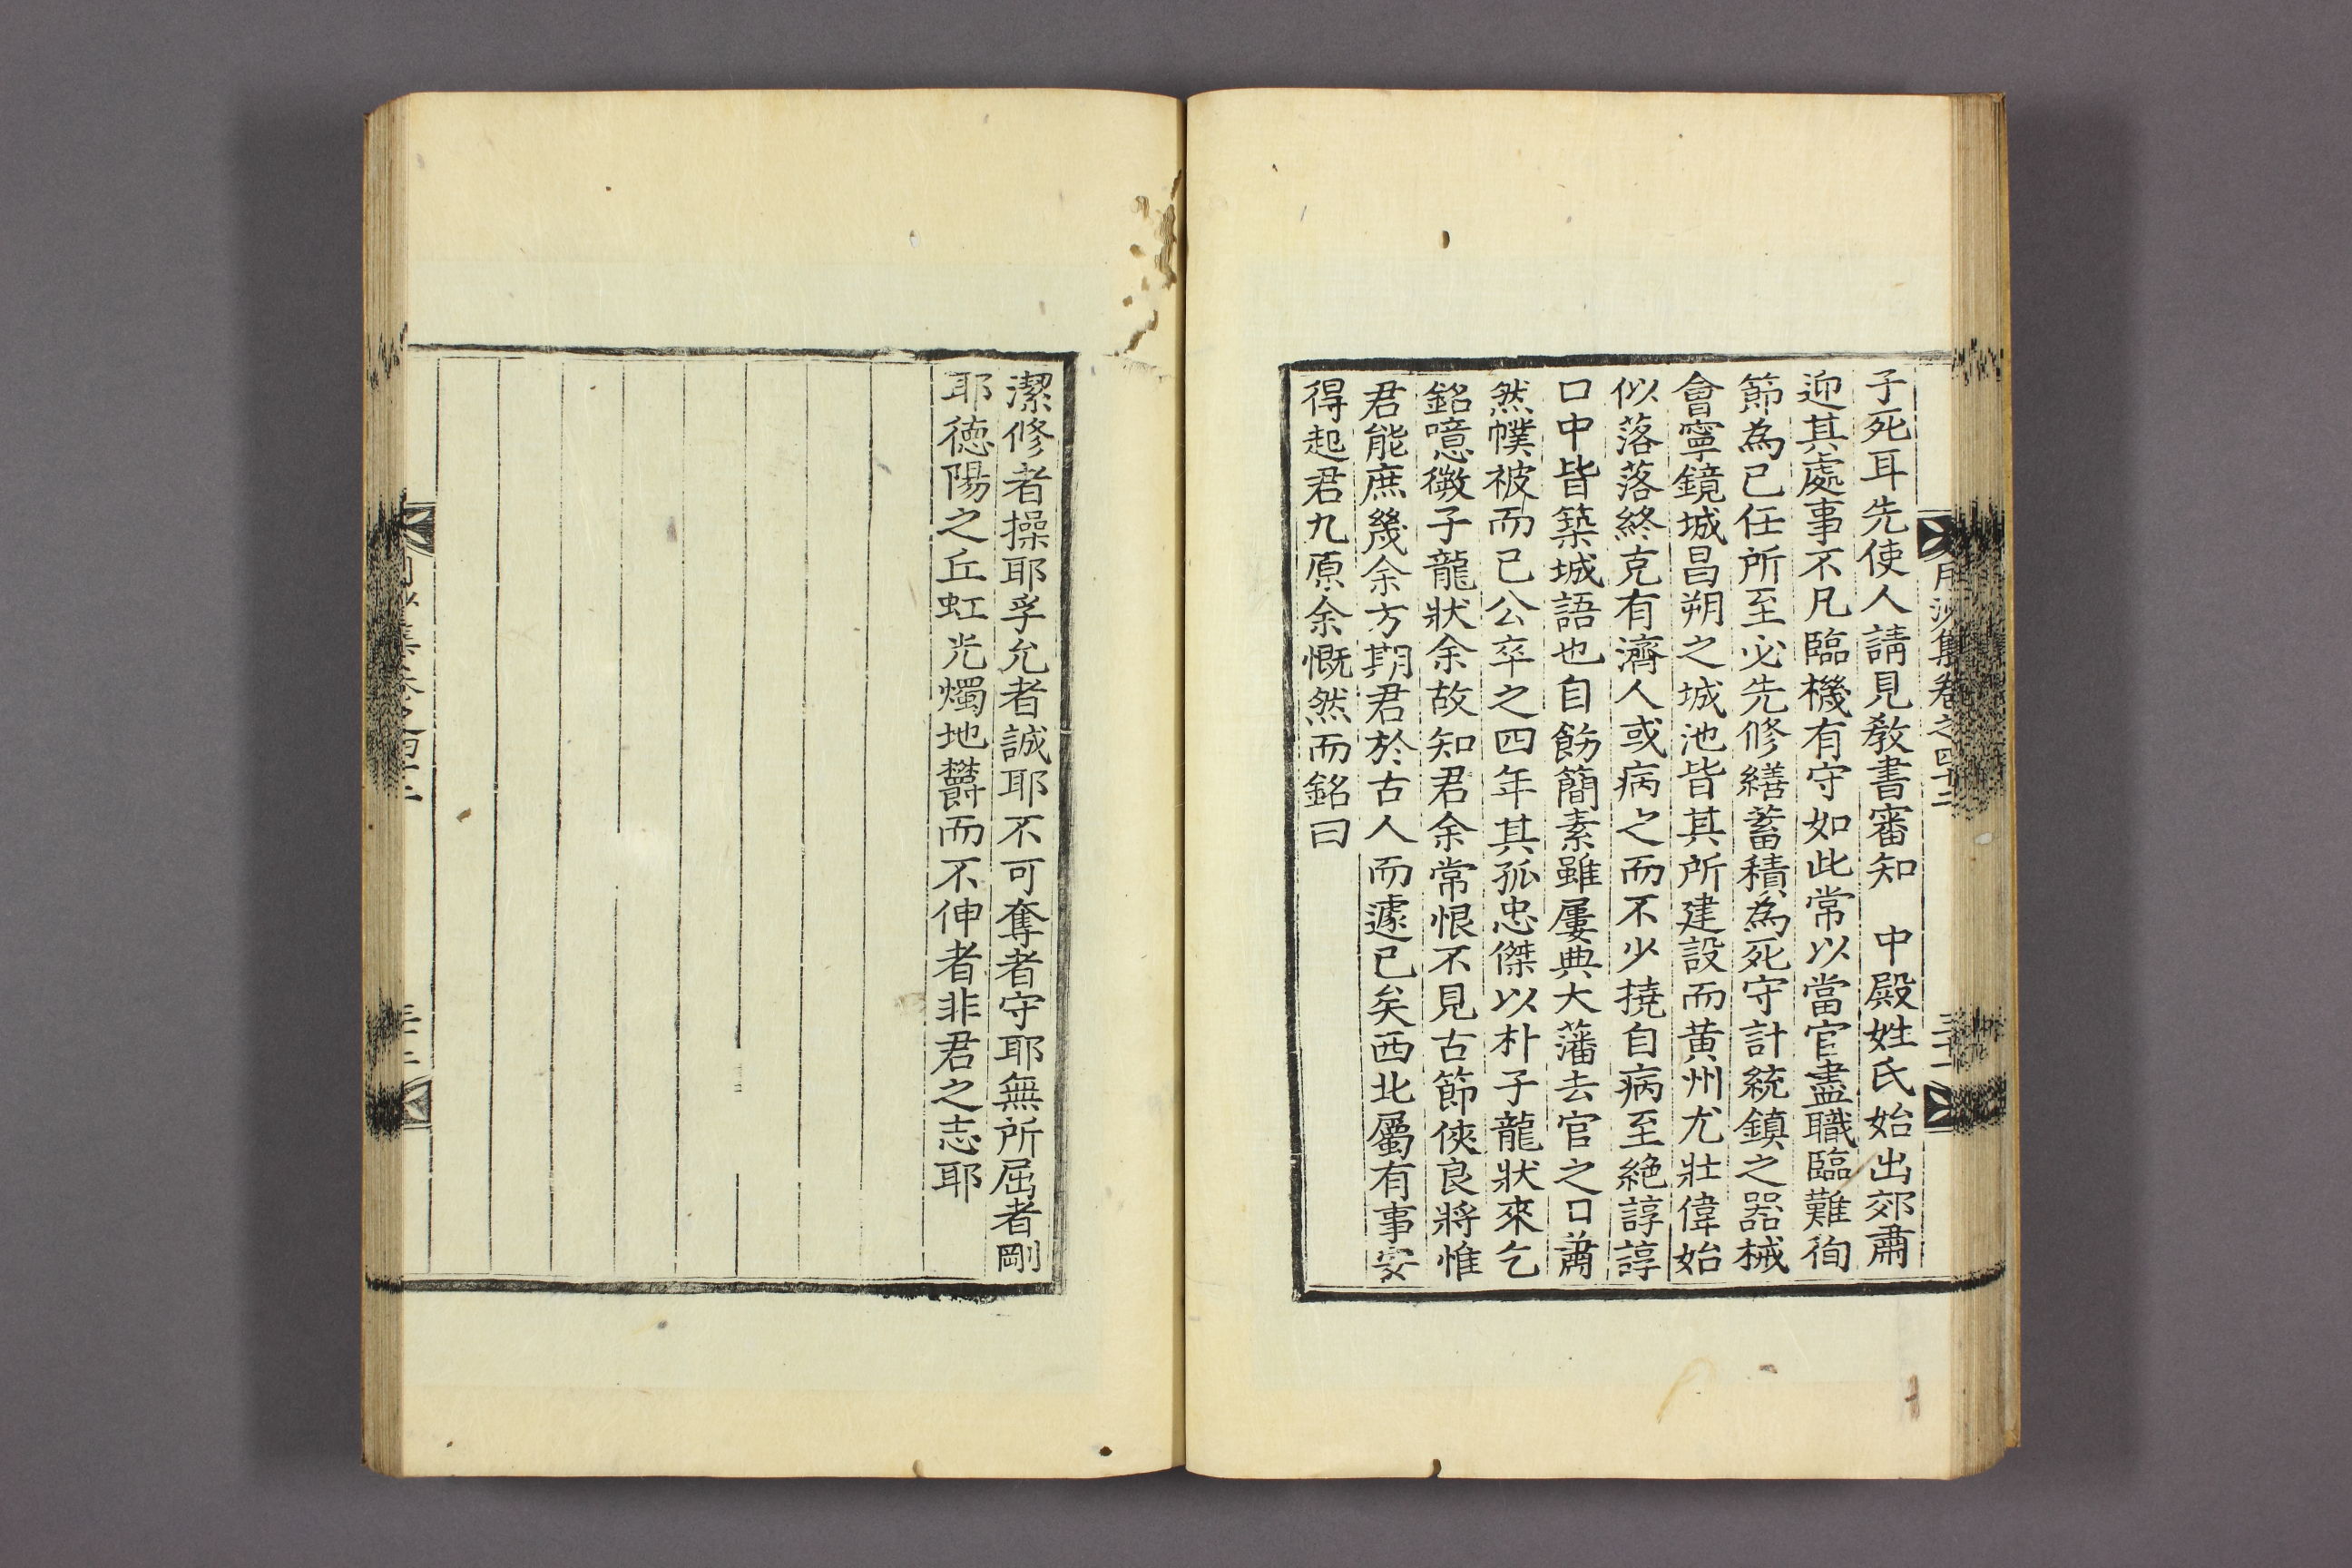 月沙集卷之四十二
三十一
子死耳先使人請見敎書審知　中殿姓氏始出郊肅
迎其處事不凡臨機有守如此常以當官盡職臨難徇
節為己任所至必先修繕蓄積為死守計統鎮之器械
會寧鏡城昌朔之城池皆其所建設而黃州尤壯偉始
似落落終克有濟人或病之而不少撓自病至絶諄諄
口中皆築城語也自飭簡素雖屢典大藩去官之日蕭
然幞被而已公卒之四年其孤忠傑以朴子龍狀來乞
銘噫微子龍狀余故知君余常恨不見古節俠良將惟
君能庶幾余方期君於古人而遽已矣西北屬有事安
得起君九原余慨然而銘曰
潔修者操耶孚允者誠耶不可奪者守耶無所屈者剛
耶德陽之丘虹光燭地欝而不伸者非君之志耶